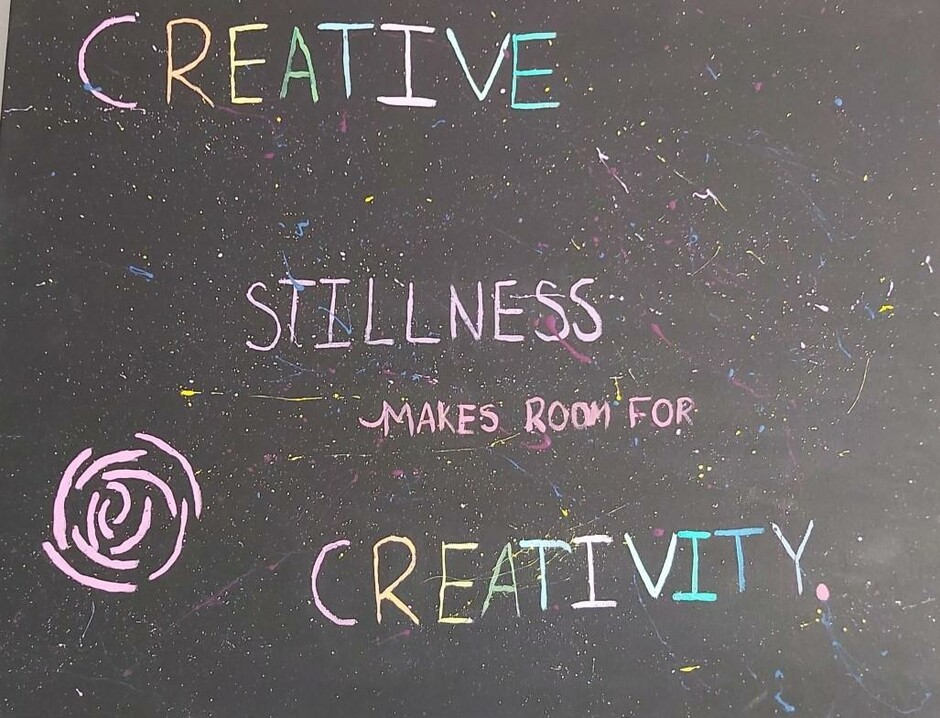 CREATIVE
STILLNESS
MAKES ROOM FOR
CREATIVITY.